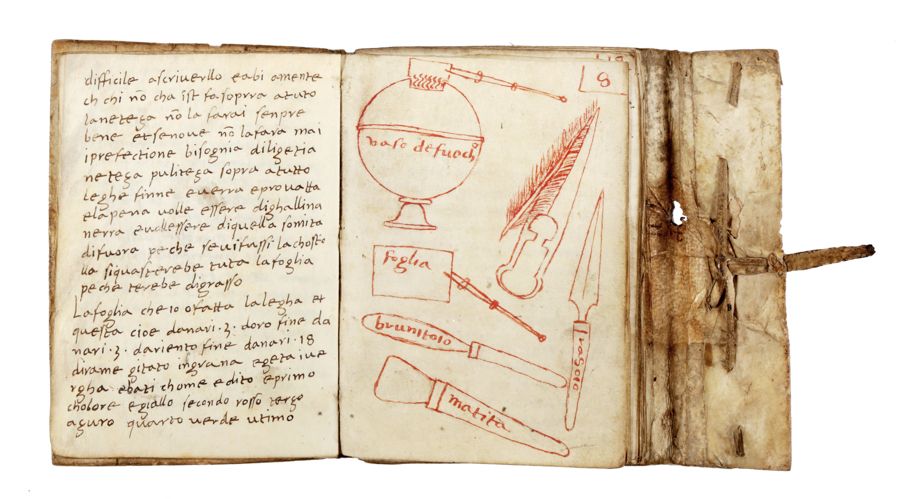 difficile ascriverllo eabi amente
ch chi nō cha ist fa soprra atuto
lanetega nō la farai senpre
bene et senoue nō lafara mai
iprefectione bisognia diligetia
netega pulitega sopra atutto
leghe finne euerra eprovatta
ela pena volle essere dighallina
nerra essere diquella somita
difuora pe che se la choste
lla siquasterebe tuta lafoglia
pe che terebe digrasso
Lafoglia che io ofatta lalegha et
questa cioe danari .3. doro fine da
nari .3. dariento fine danari .18
dirame gitato ingrana egeta iue
rgha ebati chome edito eprimo
cholore egiallo secondo rosso tergo
aguro quarto verde utimo
8
vaso defuoch
foglia
brunitoio
rasoio
matita